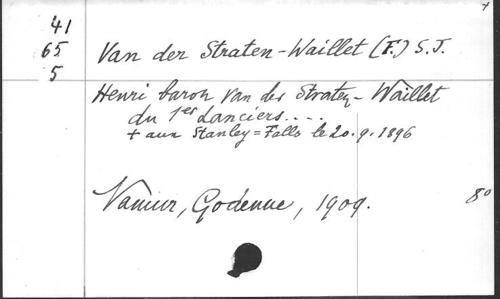 +
41
65
5
Van der Straten-Waillet (F.) S.J.
Henri baron Van der Straten-Waillet
du 1er Lanciers....
+ aux Stanley=Falls le 20.9.1896
Namur, Godenne, 1909.
8°